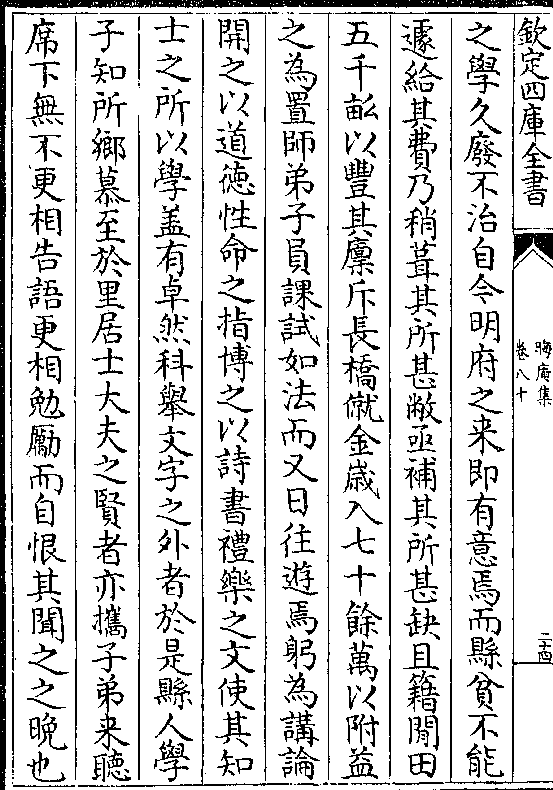 欽定四庫全書
晦庵集
卷八十
二十四
之學久廢不治自今明府之来即有意焉而縣貧不能
遽給其費乃稍葺其所甚敝亟補其所甚缺且籍閒田
五千畝以豐其廩斥長橋僦金歲入七十餘萬以附益
之為置師弟子員課試如法而又日往遊焉躬為講論
開之以道徳性命之指博之以詩書禮樂之文使其知
士之所以學盖有卓然科舉文字之外者於是縣人學
子知所鄉慕至於里居士大夫之賢者亦攜子弟来聽
席下無不更相告語更相勉勵而自恨其聞之之晚也